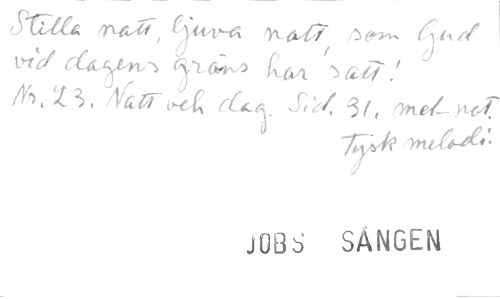 Stilla natt, ljuva natt, som Gud
vid dagens gräns har satt!
Nr. 23. Natt och dag. Sid. 31. mel-not.
Tysk melodi.
JOBS SÅNGEN